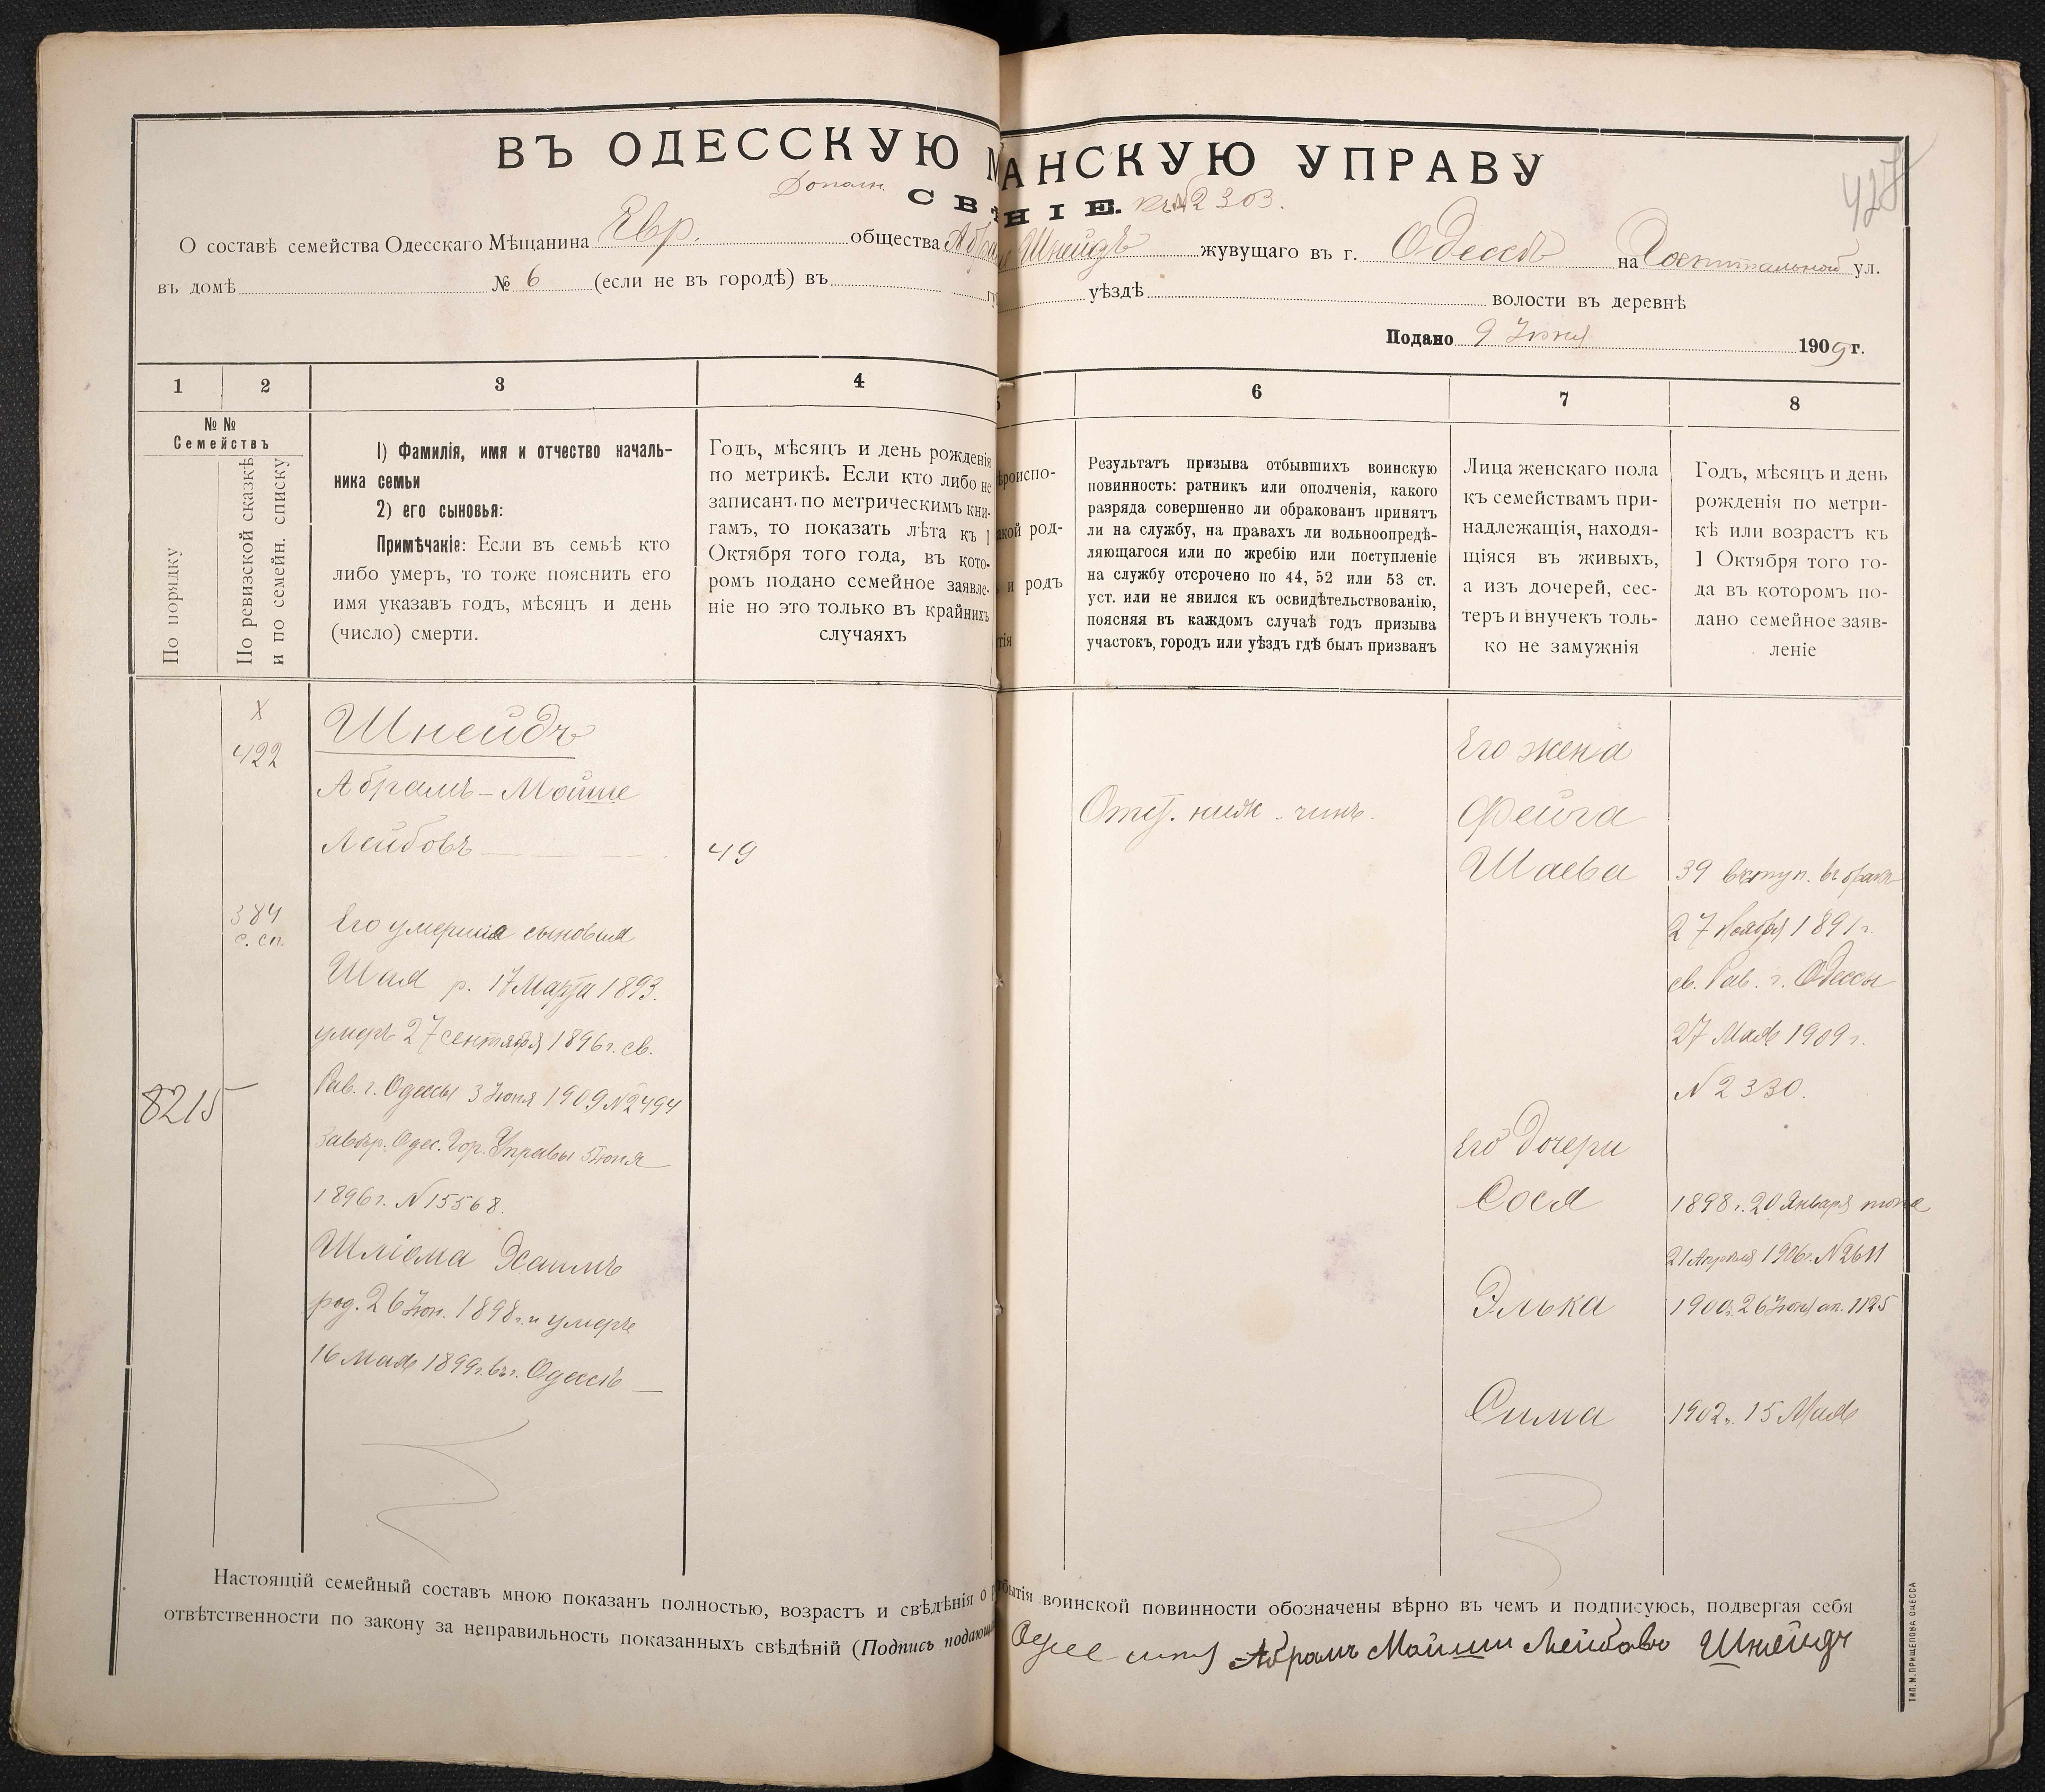 427
ВЪ ОДЕССКУЮ М АНСКУЮ УПРАВУ
Дополн. СВѢ НІЕ. къ № 2303.
О составѣ семейства Одесскаго Мѣщанина Евр. общества Абрам Шнейдъ жувущаго въ г. Одессѣ на Госпитальной ул.
въ домѣ № 6 (если не въ городѣ) въ гу уѣздѣ волости въ деревнѣ
Подано 9 Іюня 1909 г.
1 2 3 4 5 6 7 8
№№ Семействъ
По порядку
По ревизской сказкѣ
и по семейн. списку
1) Фамилія, имя и отчество началь-
ника семьи
2) его сыновья:
Примѣчакіе: Если въ семьѣ кто
либо умеръ, то тоже пояснить его
имя указавъ годъ, мѣсяцъ и день
(число) смерти.
Годъ, мѣсяцъ и день рожденія
по метрикѣ. Если кто либо не
записанъ по метрическимъ кни-
гамъ, то показать лѣта къ 1
Октября того года, въ кото-
ромъ подано семейное заявле-
ніе но это только въ крайнихъ
случаяхъ
ѣроиспо-
акой род-
и родъ
тія
Результатъ призыва отбывшихъ воинскую
повинность: ратникъ или ополченія, какого
разряда совершенно ли обракованъ принятъ
ли на службу, на правахъ ли вольноопредѣ-
ляющагося или по жребію или поступленіе
на службу отсрочено по 44, 52 или 53 ст.
уст. или не явился къ освидѣтельствованію,
поясняя въ каждомъ случаѣ годъ призыва
участокъ, городъ или уѣздъ гдѣ былъ призванъ
Лица женскаго пола
къ семействамъ при-
надлежащія, находя-
щіяся въ живыхъ,
а изъ дочерей, сес-
теръ и внучекъ толь-
ко не замужнія
Годъ, мѣсяцъ и день
рожденія по метри-
кѣ или возрастъ къ
1 Октября того го-
да въ которомъ по-
дано семейное заяв-
леніе
8215
X
422
384
с. сп.
Шнейдъ
Абрамъ-Мойше
Лейбовъ
Его умершіе сыновья
Шая р. 17 Марта 1893.
умеръ 27 сентября 1896 г. св.
Рав. г. Одессы 3 Іюня 1909 № 2494
завѣр. Одес. Гор. Управы 5 Іюня
1896 г. № 15568.
Шліома Хаимъ
род. 26 Іюн. 1898 г. и умеръ
16 Мая 1899 г. въ г. Одессѣ
49
Отст. ниж. чинъ.
Его жена
Фейга
Шаева
39 вступ. въ бракъ
27 Ноября 1891 г.
св. Рав. г. Одессы
27 Мая 1909 г.
№ 2330.
Его дочери
Сося 1898 г. 20 Января
21 Апрѣля 1906 г. № 2611
Элька 1900 г. 26 Іюня 1125
Сима 1902 г. 15 Мая
Настоящій семейный составъ мною показанъ полностью, возрастъ и свѣдѣнія о бытія воинской повинности обозначены вѣрно въ чемъ и подписуюсь, подвергая себя
отвѣтственности по закону за неправильность показанныхъ свѣдѣній (Подпись подающ Абрамъ Мойше Лейбовъ Шнейдъ
ТИП. М. ПРИЩЕПОВА ОДЕССА